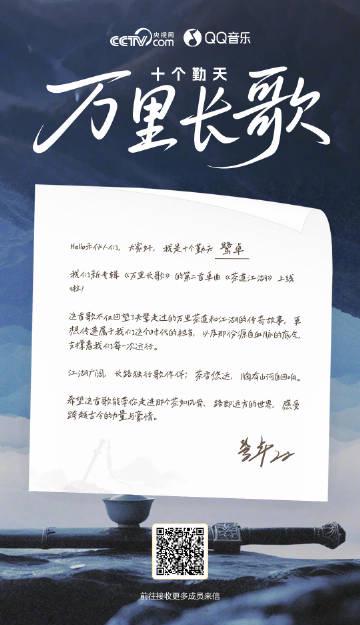 CCTV 央视网 .com QQ音乐
十个勤天
万里长歌
Hello禾伙人们,大家好,我是十个勤天 鹭卓
我们新专辑《万里长歌》的第二首单曲《茶道江湖》上线
啦!
这首歌不仅回望了先辈走过的万里茶道和江湖的传奇故事,更
想传递属于我们这个时代的担当,以及那份源自血脉的底气,
支撑着我们每一次远行。
江湖广阔,长路独行歌作伴;茶香悠远,胸有山河自回响。
希望这首歌能带你走进那个茶知风骨、路即远方的世界,感受
跨越古今的力量与豪情。
前往接收更多成员来信